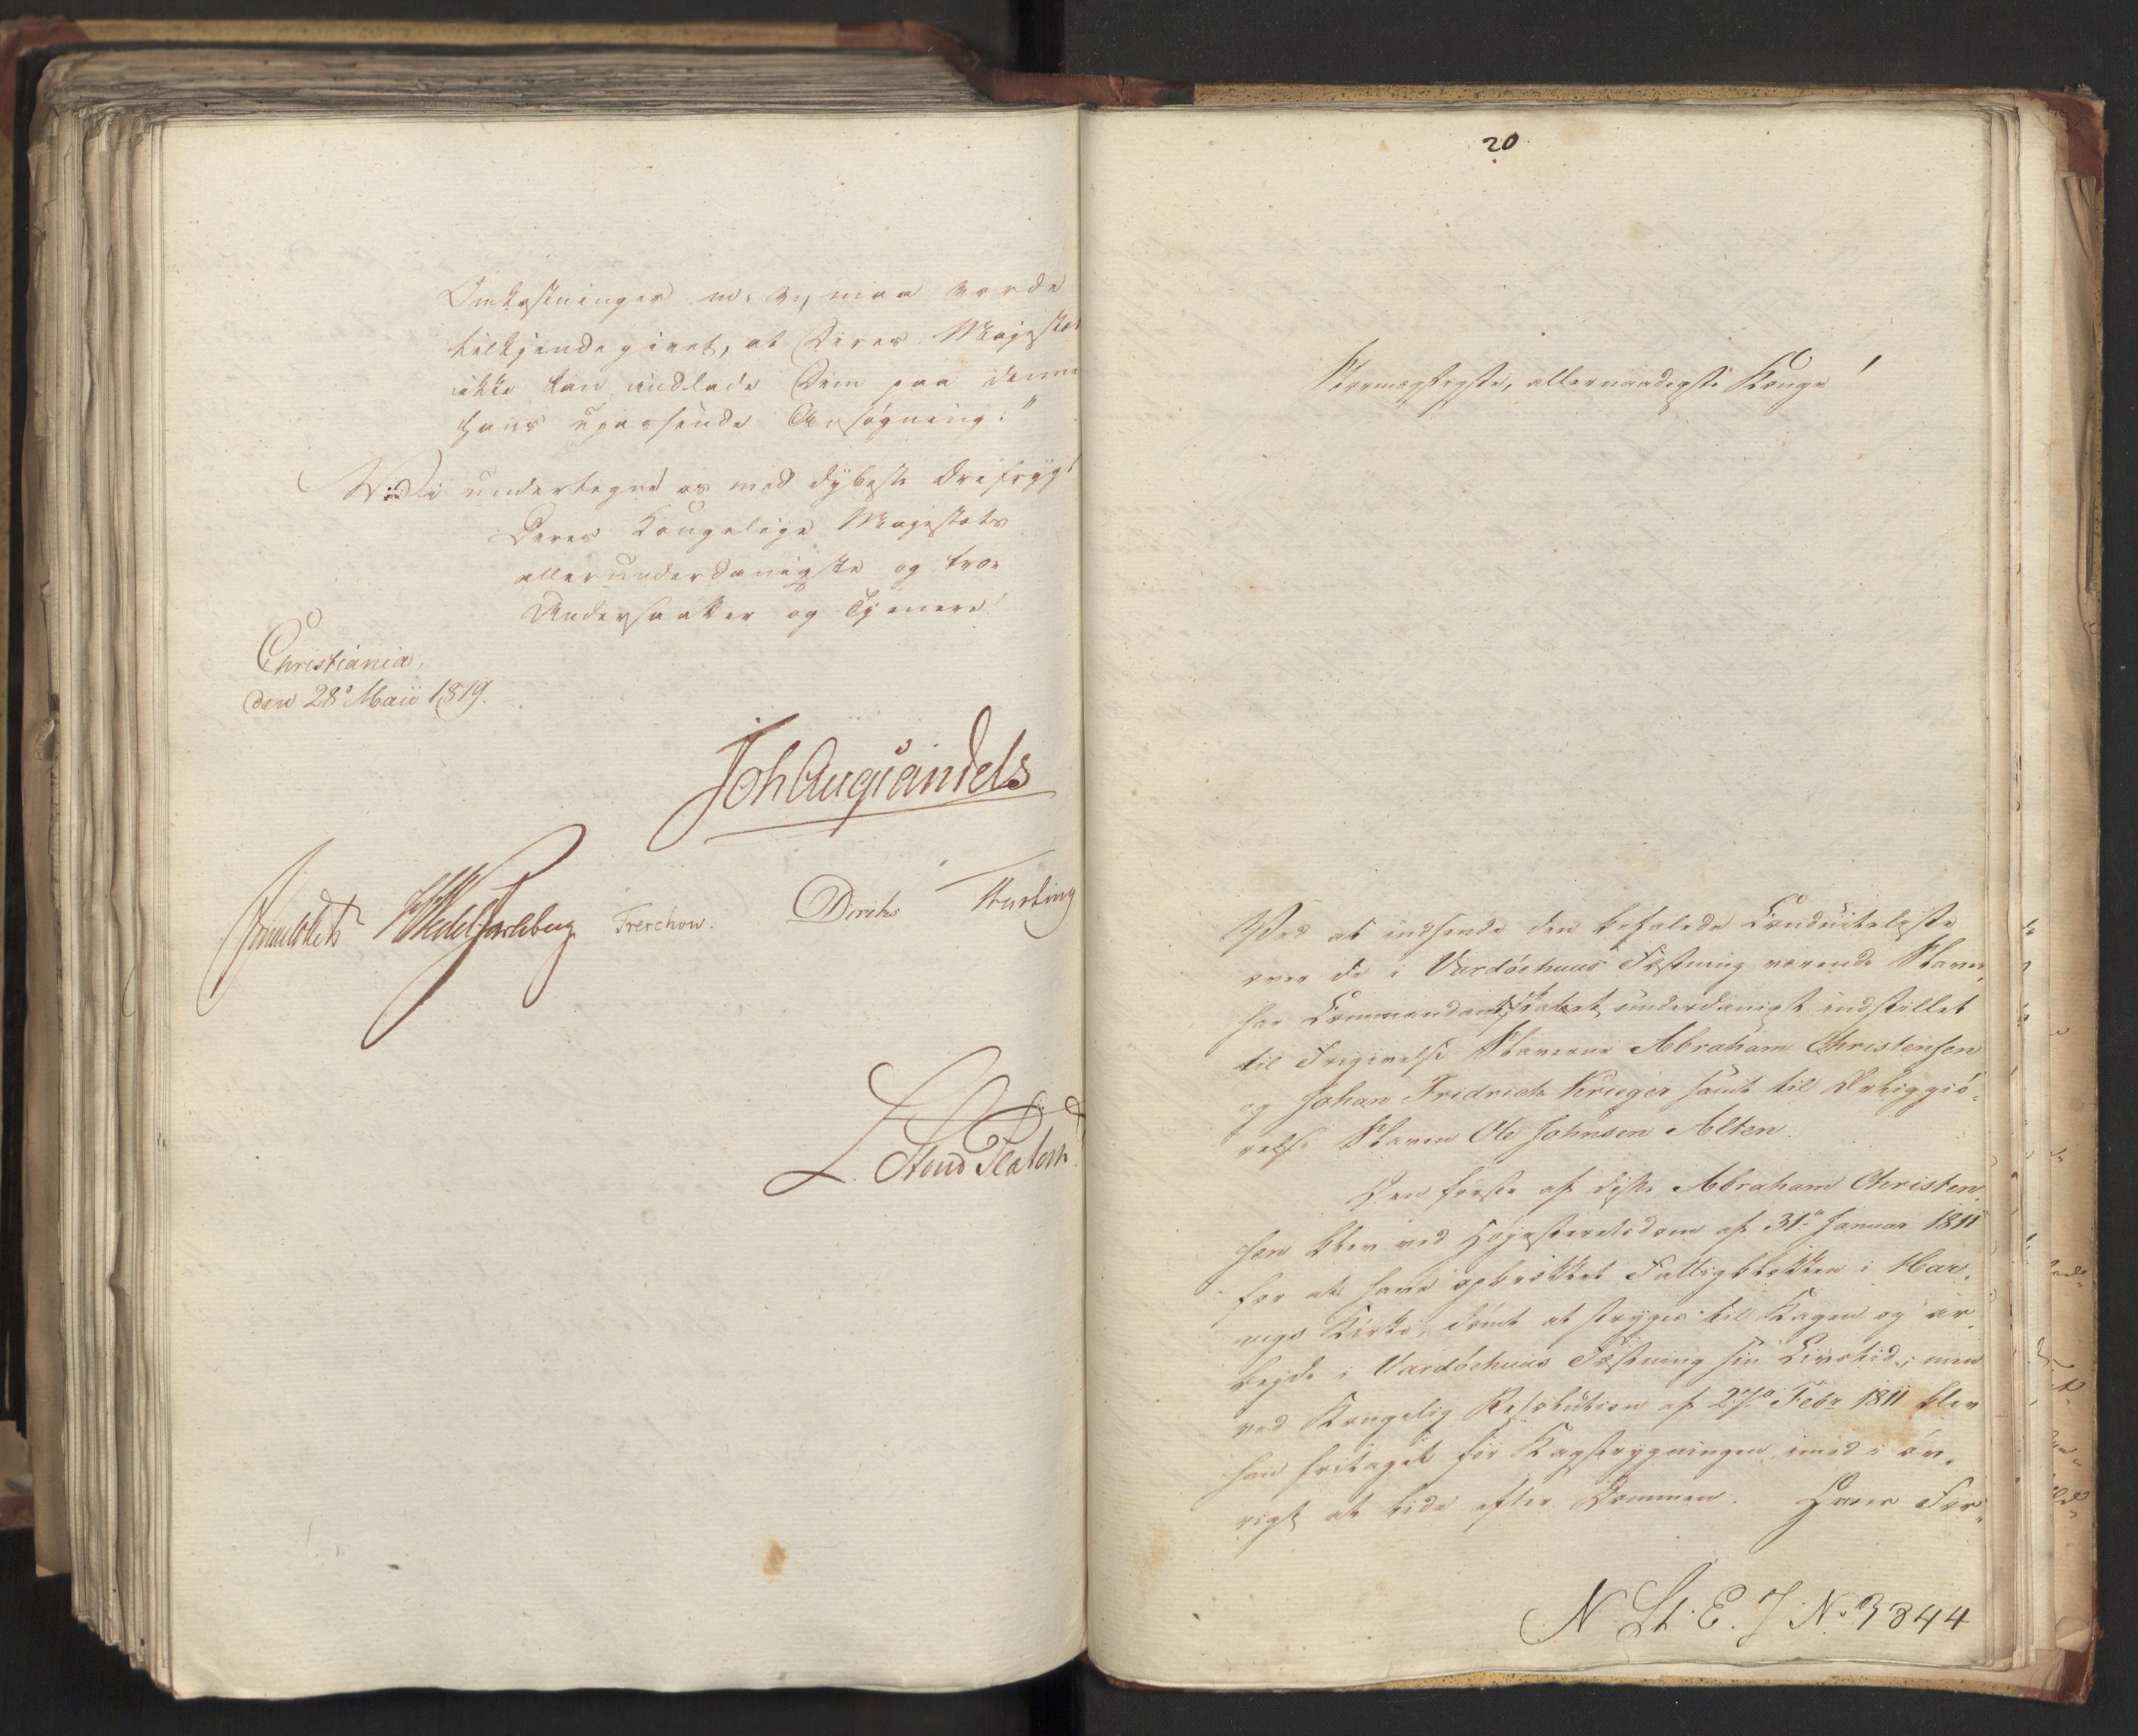 Omkostninger m: v:, maa vorde
tilkjendegivet, at Deres Majestæt
ikke kan indlade Dem paa denne
hans upassende Ansøgning."
Vi undertegne os med dybeste Ærefrygt
Deres Kongelige Majestæts
allerunderdanigste og troe
Undersaatter og Tjenere!
Christiania,
den 28de Maii 1819.
Joh Aug Sandels
WedelJarlsberg Treschow. Diriks
20.
Stormægtigste, allernaadigste Konge!
Ved at indsende den befalede Conduiteliste
over de i Vardöehuus Fæstning værende Slaver,
har Commandantskabet underdanigst indstillet
til Frigivelse Slaverne Abraham Christensen
og Johan Fridrich Krieger samt til Ærliggiö-
relse Slaven Ole Johnsen Alten.
Den første af disse Abraham Christen-
sen blev ved Høgesteretsdom af 31te Januar 1811
for at have opbrækket Fattigblokken i Har-
vigs Kirke, dömt at stryges til Kagen og ar-
bejde i Vardöehuus Fæstning sin Livstid; men
ved Kongelig Resolution af 27de Febr 1811 blev
han fritaget for Kagstrygningen, imod i öv-
rigt at lide efter Dommen. Hans For-
N St. E. J No 3844